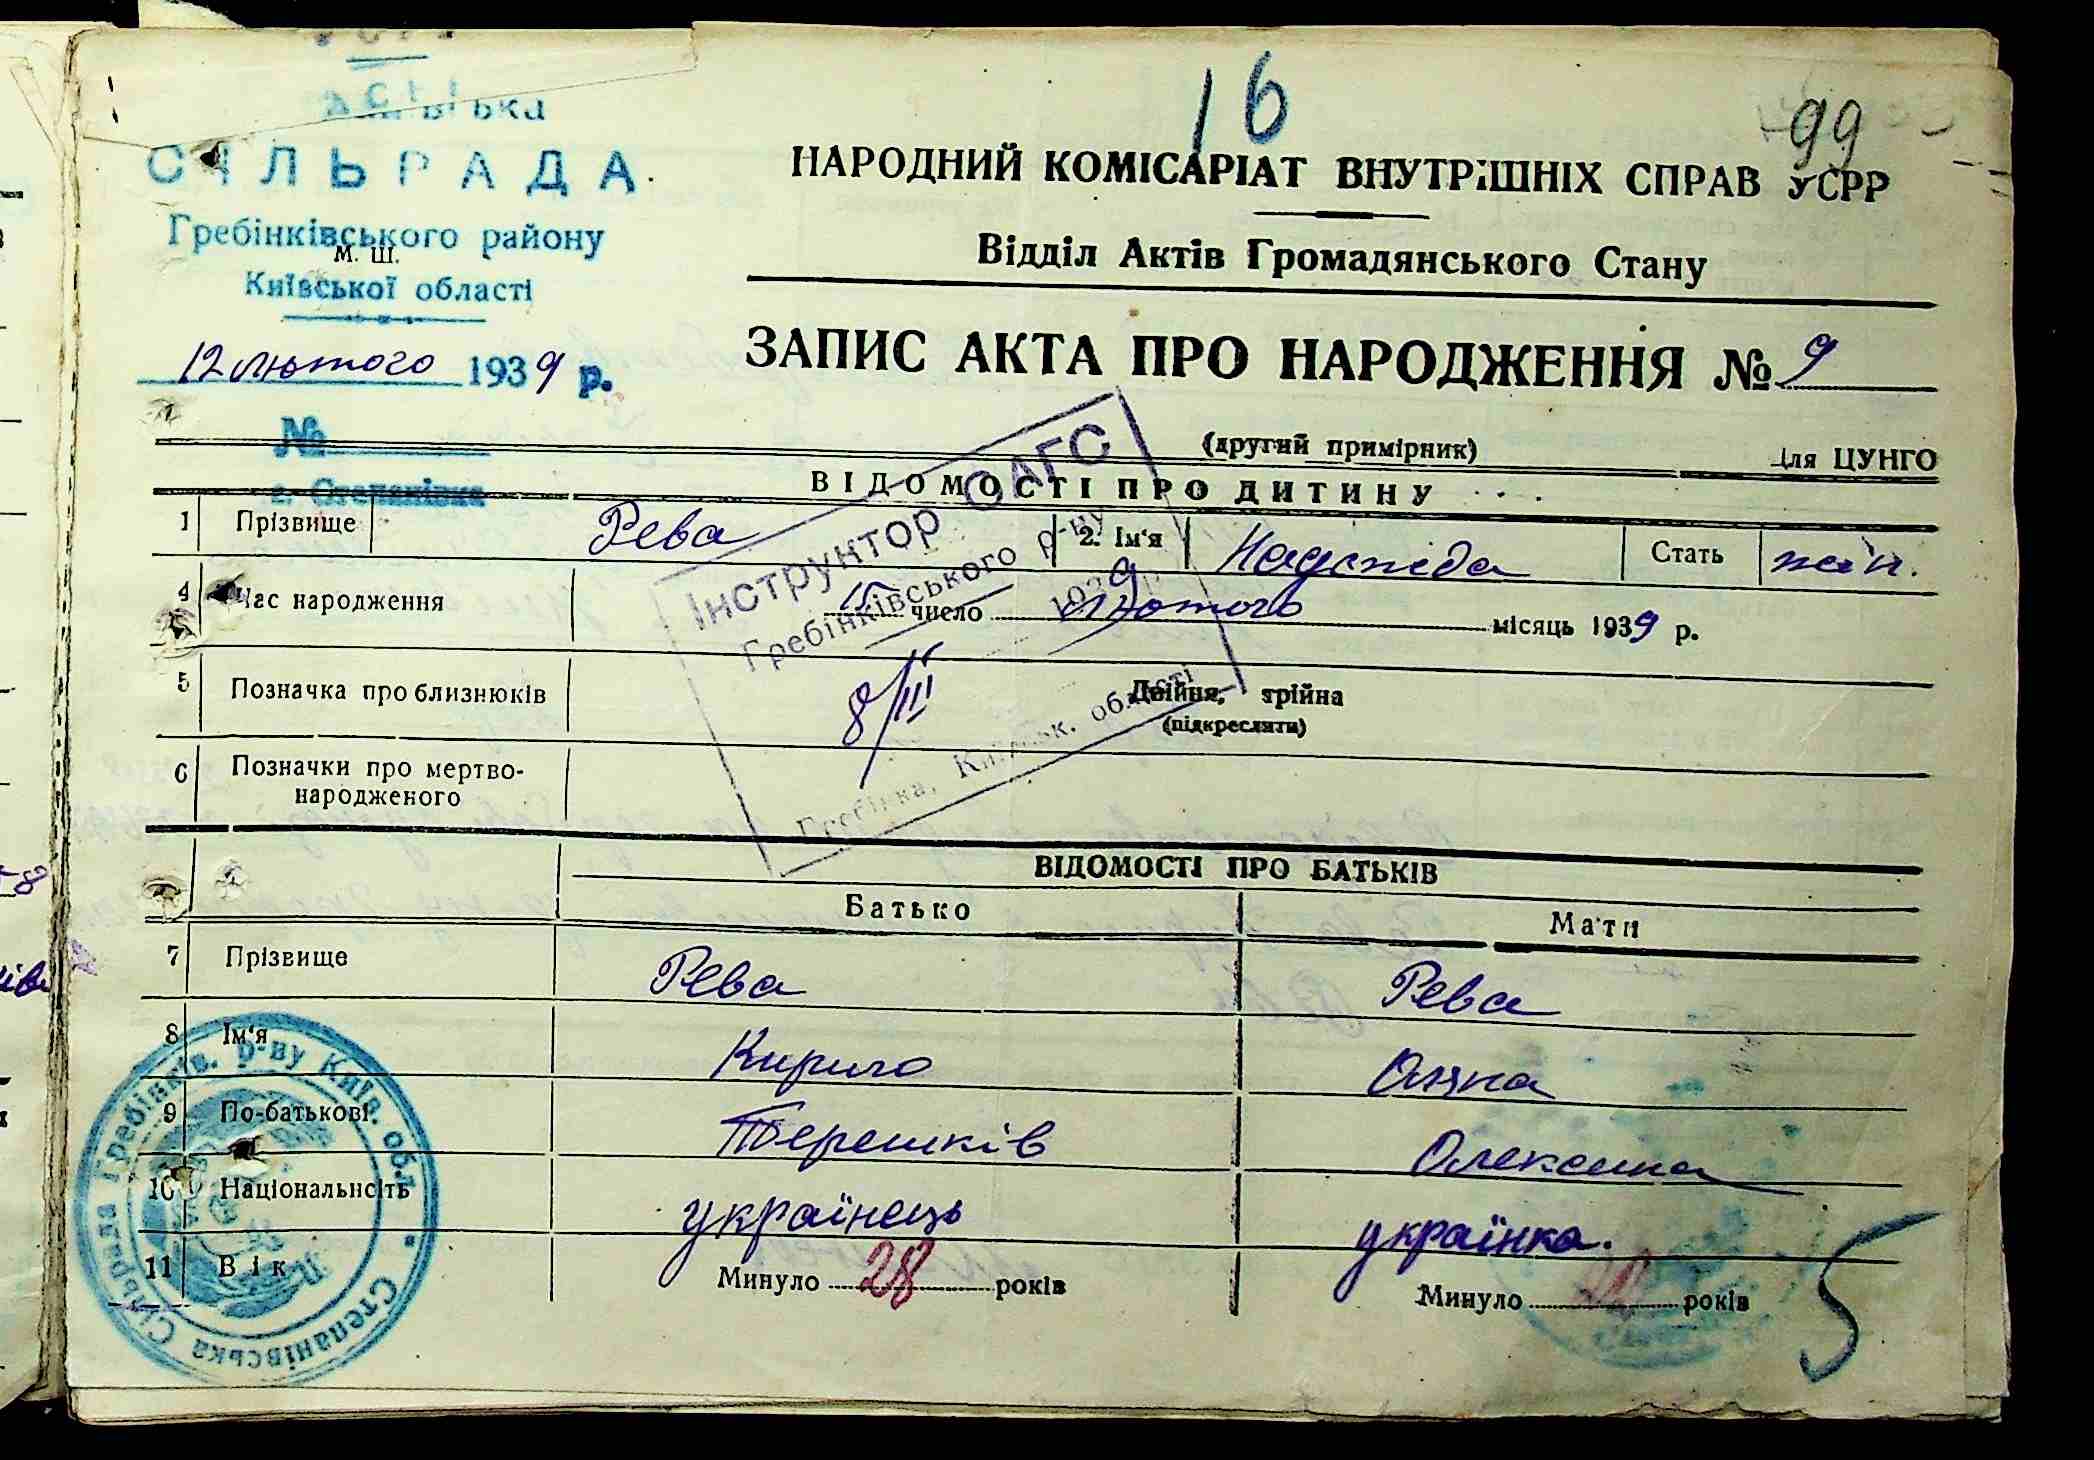 16
99
СІЛЬРАДА
Гребінківського району
М. Ш.
Київської області
12 лютого 1939 р.
№
с. Степанівка
НАРОДНИЙ КОМІСАРІАТ ВНУТРІШНІХ СПРАВ УСРР
Відділ Актів Громадянського Стану
ЗАПИС АКТА ПРО НАРОДЖЕННЯ № 9
(другий примірник) Для ЦУНГО
ВІДОМОСТІ ПРО ДИТИНУ
1 Прізвище Рева 2. Ім'я Надежда Стать жін.
4 Час народження число лютого місяць 1939 р.
5 Позначка про близнюків Двійня, трійна
(підкреслити)
6 Позначки про мертво-
народженого
Інструктор ОАГС
Гребінківського р-ну
8/III 1939 р.
Гребінка, Київськ. області
ВІДОМОСТІ ПРО БАТЬКІВ
Батько Мати
7 Прізвище Рева Рева
8 Ім'я Кирило
9 По-батькові Терешків
10 Національність українець українка.
11 Вік Минуло 28 років Минуло років
Степанівська Сільрада Гребінків. р-ну Київ. обл.
5